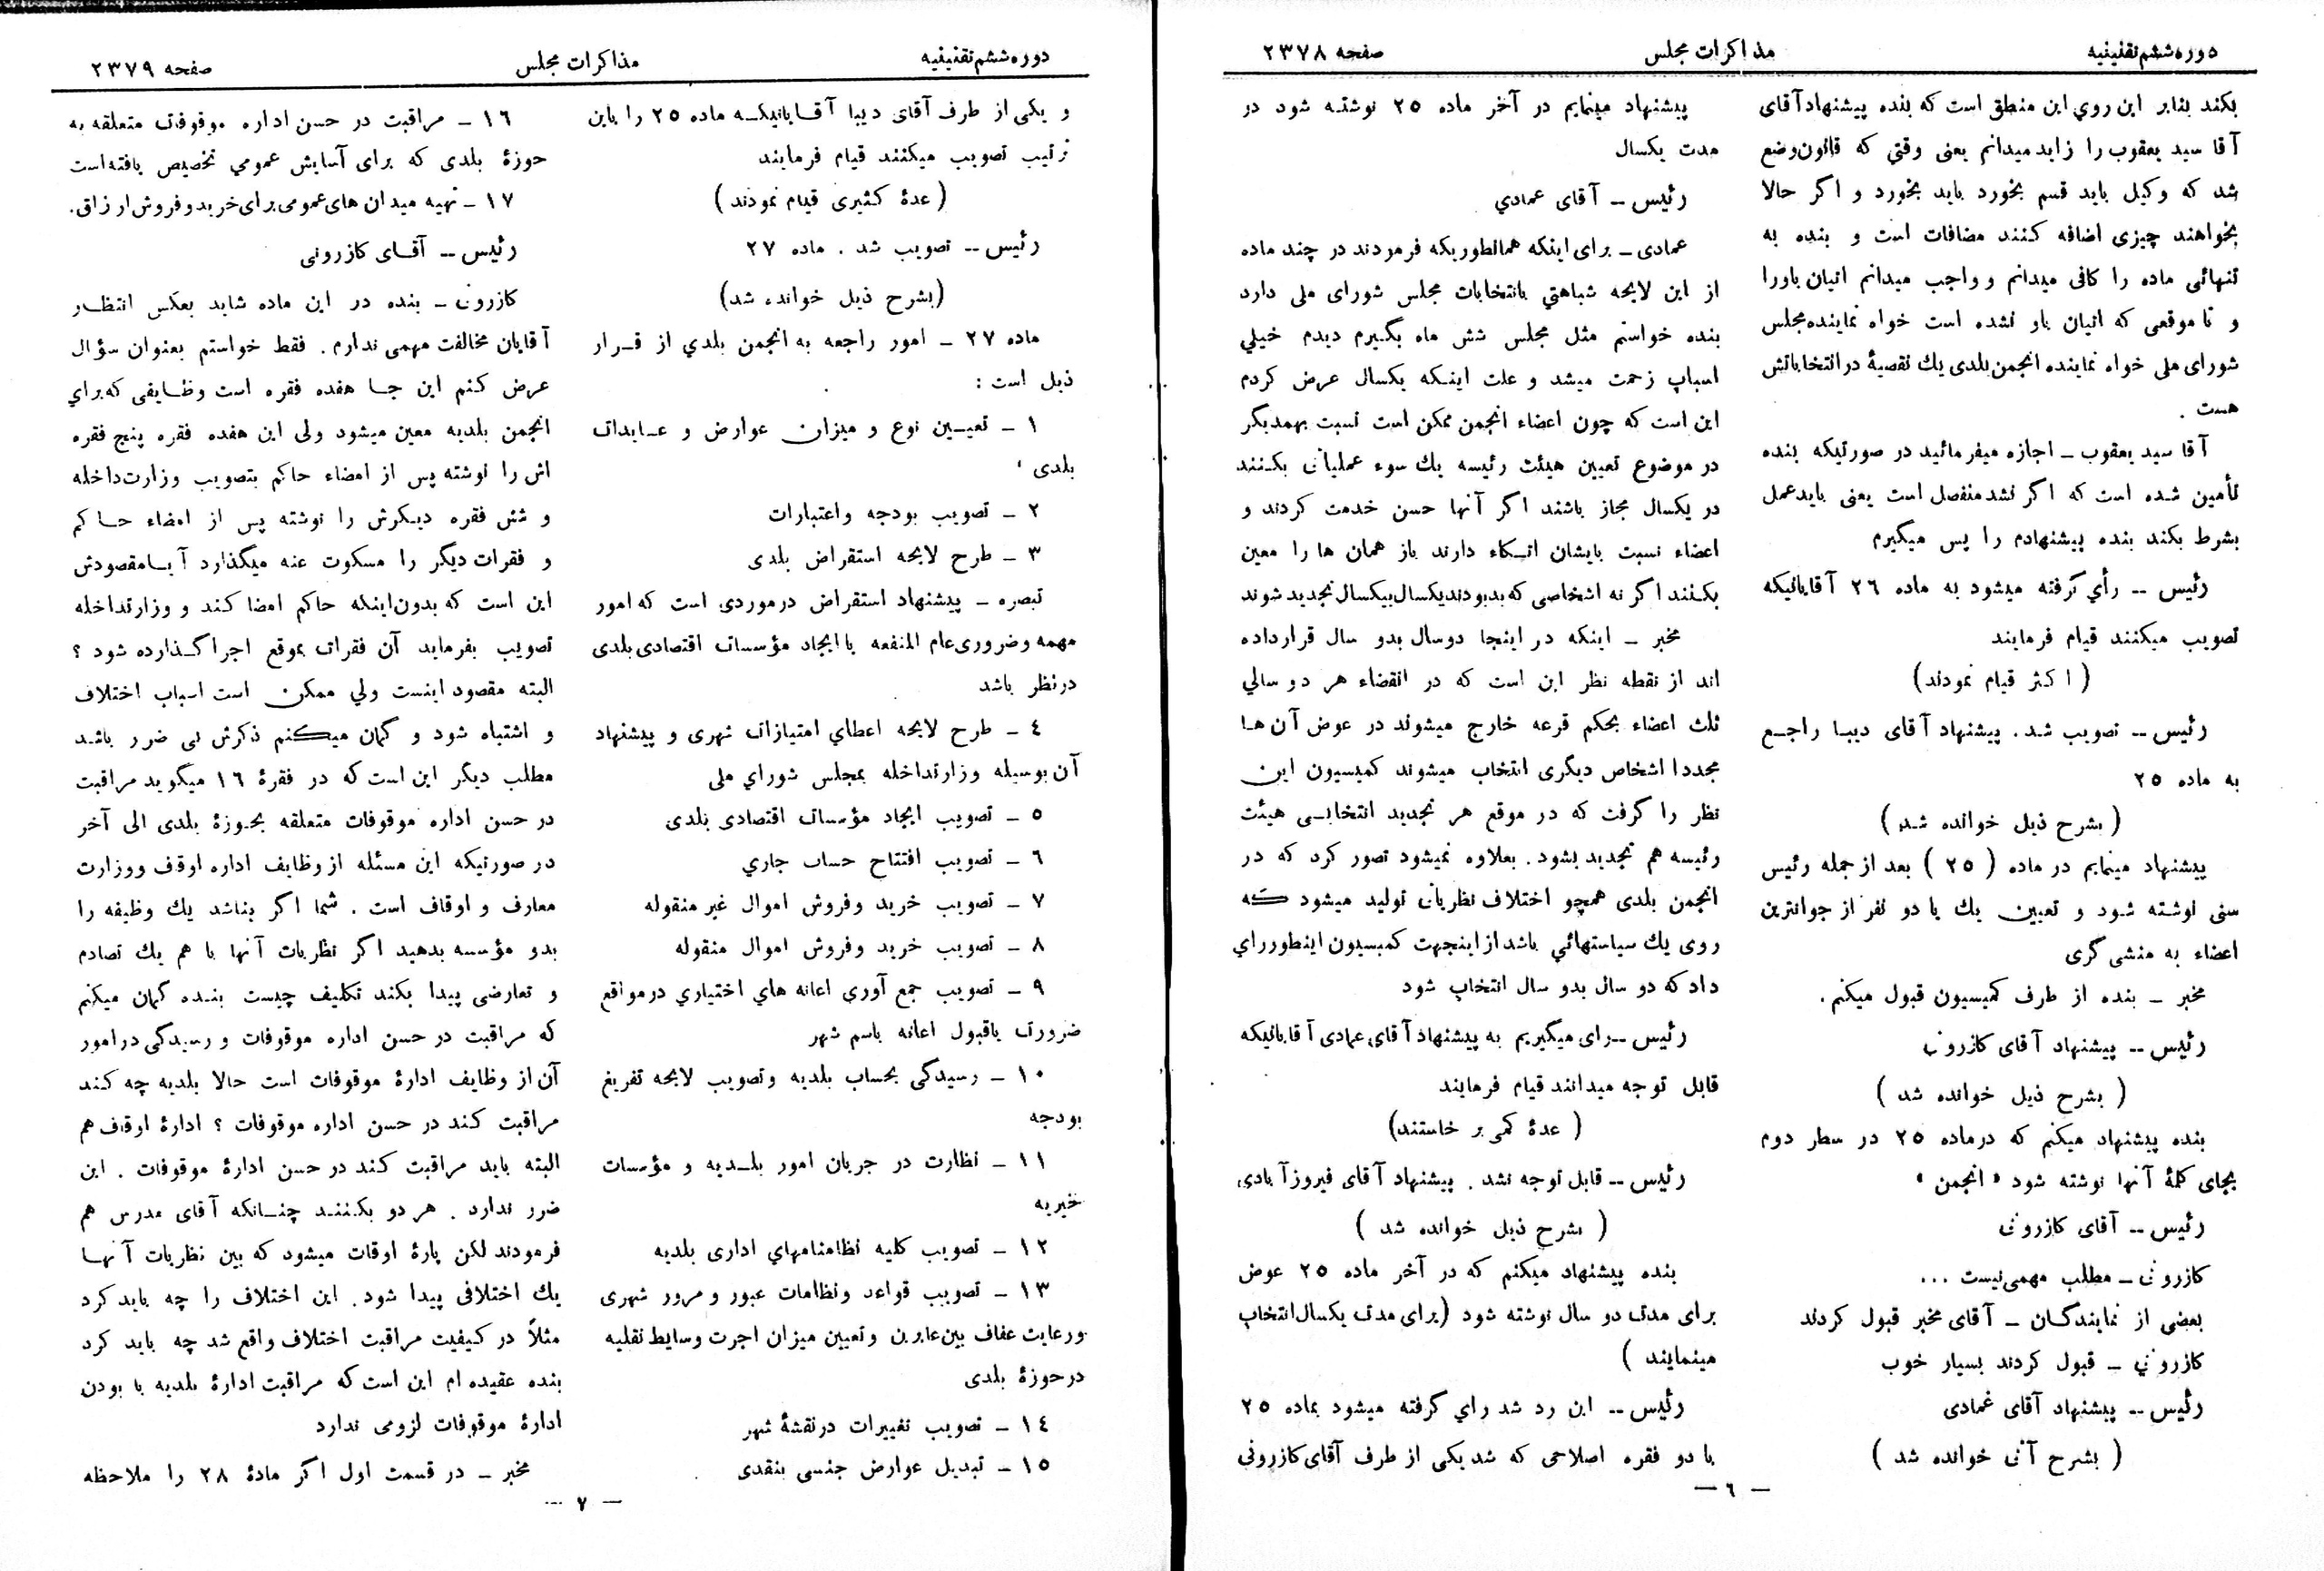 دوره ششم تقنینیه
مذاکرات مجلس
صفحه ۲۳۷۸
بکند بنابر این روی این منطق است که بنده پیشنهاد آقای
آقا سید یعقوب را زاید میدانم یعنی وقتی که قانون وضع
شد که وکیل باید قسم بخورد باید بخورد و اگر حالا
بخواهند چیزی اضافه کنند مضافات است و بنده به
تنهائی ماده را کافی میدانم و واجب میدانم اتیان باورا
و تا موقعی که اتیان باو نشده است خواه نماینده مجلس
شورای ملی خواه نماینده انجمن بلدی یك نقصیهٔ در انتخاباتش
هست .
آقا سید یعقوب ـ اجازه میفرمائید در صورتیکه بنده
تأمین شده است که اگر نشد منفصل است یعنی باید عمل
بشرط بکند بنده پیشنهادم را پس میگیرم
رئیس ــ رأی گرفته میشود به ماده ٢٦ آقایانیکه
تصویب میکنند قیام فرمایند
( اکثر قیام نمودند )
رئیس ــ تصویب شد . پیشنهاد آقای دیبا راجع
به ماده ٢٥
( بشرح ذیل خوانده شد )
پیشنهاد مینمایم در ماده ( ٢٥ ) بعد از جمله رئیس
سنی نوشته شود و تعیین یك یا دو نفر از جوانترین
اعضاء به منشی گری
مخبر ـ بنده از طرف کمیسیون قبول میکنم .
رئیس ــ پیشنهاد آقای کازرونی
( بشرح ذیل خوانده شد )
بنده پیشنهاد میکنم که در ماده ٢٥ در سطر دوم
بجای کلمهٔ آنها نوشته شود « انجمن »
رئیس ــ آقای کازرونی
کازرونی ـ مطلب مهمی نیست ...
بعضی از نمایندگان ـ آقای مخبر قبول کردند
کازرونی ـ قبول کردند بسیار خوب
رئیس ــ پیشنهاد آقای عمادی
( بشرح آتی خوانده شد )
پیشنهاد مینمایم در آخر ماده ٢٥ نوشته شود در
مدت یکسال
رئیس ــ آقای عمادی
عمادی ـ برای اینکه همانطوریکه فرمودند در چند ماده
از این لایحه شباهتی بانتخابات مجلس شورای ملی دارد
بنده خواستم مثل مجلس شش ماه بگیرم دیدم خیلی
اسباب زحمت میشد و علت اینکه یکسال عرض کردم
این است که چون اعضاء انجمن ممکن است نسبت بهمدیگر
در موضوع تعیین هیئت رئیسه یك سوء عملیاتی بکنند
در یکسال مجاز باشند اگر آنها حسن خدمت کردند و
اعضاء نسبت بایشان اتکاء دارند باز همان ها را معین
بکنند اگر نه اشخاصی که بد بودند یکسال بیکسال تجدید شوند
مخبر ـ اینکه در اینجا دوسال بدو سال قرارداده
اند از نقطه نظر این است که در انقضاء هر دو سالی
ثلث اعضاء بحکم قرعه خارج میشوند در عوض آن ها
مجددا اشخاص دیگری انتخاب میشوند کمیسیون این
نظر را گرفت که در موقع هر تجدید انتخابی هیئت
رئیسه هم تجدید بشود . بعلاوه نمیشود تصور کرد که در
انجمن بلدی همچو اختلاف نظریاتی تولید میشود که
روی یك سیاستهائی باشد از اینجهت کمیسیون اینطور رای
داد که دو سال بدو سال انتخاب شود
رئیس ــ رای میگیریم به پیشنهاد آقای عمادی آقایانیکه
قابل توجه میدانند قیام فرمایند
( عدهٔ کمی بر خاستند )
رئیس ــ قابل توجه نشد . پیشنهاد آقای فیروزآبادی
( بشرح ذیل خوانده شد )
بنده پیشنهاد میکنم که در آخر ماده ٢٥ عوض
برای مدت دو سال نوشته شود (برای مدت یکسال انتخاب
مینمایند )
رئیس ــ این رد شد رای گرفته میشود بماده ٢٥
با دو فقره اصلاحی که شد یکی از طرف آقای کازرونی
— ٦ —
دوره ششم تقنینیه
مذاکرات مجلس
صفحه ۲۳۷۹
و یکی از طرف آقای دیبا آقایانیکه ماده ٢٥ را باین
ترتیب تصویب میکنند قیام فرمایند
( عدهٔ کثیری قیام نمودند )
رئیس ــ تصویب شد . ماده ٢٧
(بشرح ذیل خوانده شد)
ماده ٢٧ ـ امور راجعه به انجمن بلدی از قرار
ذیل است :
١ ـ تعیین نوع و میزان عوارض و عایدات
بلدی
٢ ـ تصویب بودجه واعتبارات
٣ ـ طرح لایحه استقراض بلدی
تبصره ـ پیشنهاد استقراض درموردی است که امور
مهمه وضروری عام المنفعه یا ایجاد مؤسسات اقتصادی بلدی
درنظر باشد
٤ ـ طرح لایحه اعطای امتیازات شهری و پیشنهاد
آن بوسیله وزارتداخله بمجلس شورای ملی
٥ ـ تصویب ایجاد مؤسسات اقتصادی بلدی
٦ ـ تصویب افتتاح حساب جاری
٧ ـ تصویب خرید وفروش اموال غیر منقوله
٨ ـ تصویب خرید وفروش اموال منقوله
٩ ـ تصویب جمع آوری اعانه های اختیاری درمواقع
ضرورت یاقبول اعانه باسم شهر
١٠ ـ رسیدگی بحساب بلدیه وتصویب لایحه تفریغ
بودجه
١١ ـ نظارت در جریان امور بلدیه و مؤسسات
خیریه
١٢ ـ تصویب کلیه نظامنامهای اداری بلدیه
١٣ ـ تصویب قواعد ونظامات عبور و مرور شهری
ورعایت عفاف بین عابرین وتعیین میزان اجرت وسایط نقلیه
درحوزهٔ بلدی
١٤ ـ تصویب تغییرات درنقشهٔ شهر
١٥ ـ تبدیل عوارض جنسی بنقدی
١٦ ـ مراقبت در حسن اداره موقوفات متعلقه به
حوزهٔ بلدی که برای آسایش عمومی تخصیص یافته است
١٧ ـ تهیه میدان های عمومی برای خرید و فروش ارزاق .
رئیس ــ آقای کازرونی
کازرونی ـ بنده در این ماده شاید بعکس انتظار
آقایان مخالفت مهمی ندارم . فقط خواستم بعنوان سؤال
عرض کنم این جا هفده فقره است وظایفی که برای
انجمن بلدیه معین میشود ولی این هفده فقره پنج فقره
اش را نوشته پس از امضاء حاکم بتصویب وزارت داخله
و شش فقره دیگرش را نوشته پس از امضاء حاکم
و فقرات دیگر را مسکوت عنه میگذارد آیا مقصودش
این است که بدون اینکه حاکم امضا کند و وزارتداخله
تصویب بفرماید آن فقرات بموقع اجرا گذارده شود ؟
البته مقصود اینست ولی ممکن است اسباب اختلاف
و اشتباه شود و گمان میکنم ذکرش بی ضرر باشد
مطلب دیگر این است که در فقرهٔ ١٦ میگوید مراقبت
در حسن اداره موقوفات متعلقه بحوزهٔ بلدی الی آخر
در صورتیکه این مسئله از وظایف اداره اوقاف ووزارت
معارف و اوقاف است . شما اگر بناشد یك وظیفه را
بدو مؤسسه بدهید اگر نظریات آنها با هم یك تصادم
و تعارضی پیدا بکند تکلیف چیست بنده گمان میکنم
که مراقبت در حسن اداره موقوفات و رسیدگی در امور
آن از وظایف ادارهٔ موقوفات است حالا بلدیه چه کند
مراقبت کند در حسن اداره موقوفات ؟ ادارهٔ اوقاف هم
البته باید مراقبت کند در حسن ادارهٔ موقوفات . این
ضرر ندارد . هر دو بکنند چنانکه آقای مدرس هم
فرمودند لکن پارهٔ اوقات میشود که بین نظریات آنها
یك اختلافی پیدا شود . این اختلاف را چه باید کرد
مثلاً در کیفیت مراقبت اختلاف واقع شد چه باید کرد
بنده عقیده ام این است که مراقبت ادارهٔ بلدیه با بودن
ادارهٔ موقوفات لزومی ندارد
مخبر ـ در قسمت اول اگر مادهٔ ٢٨ را ملاحظه
— ٧ —